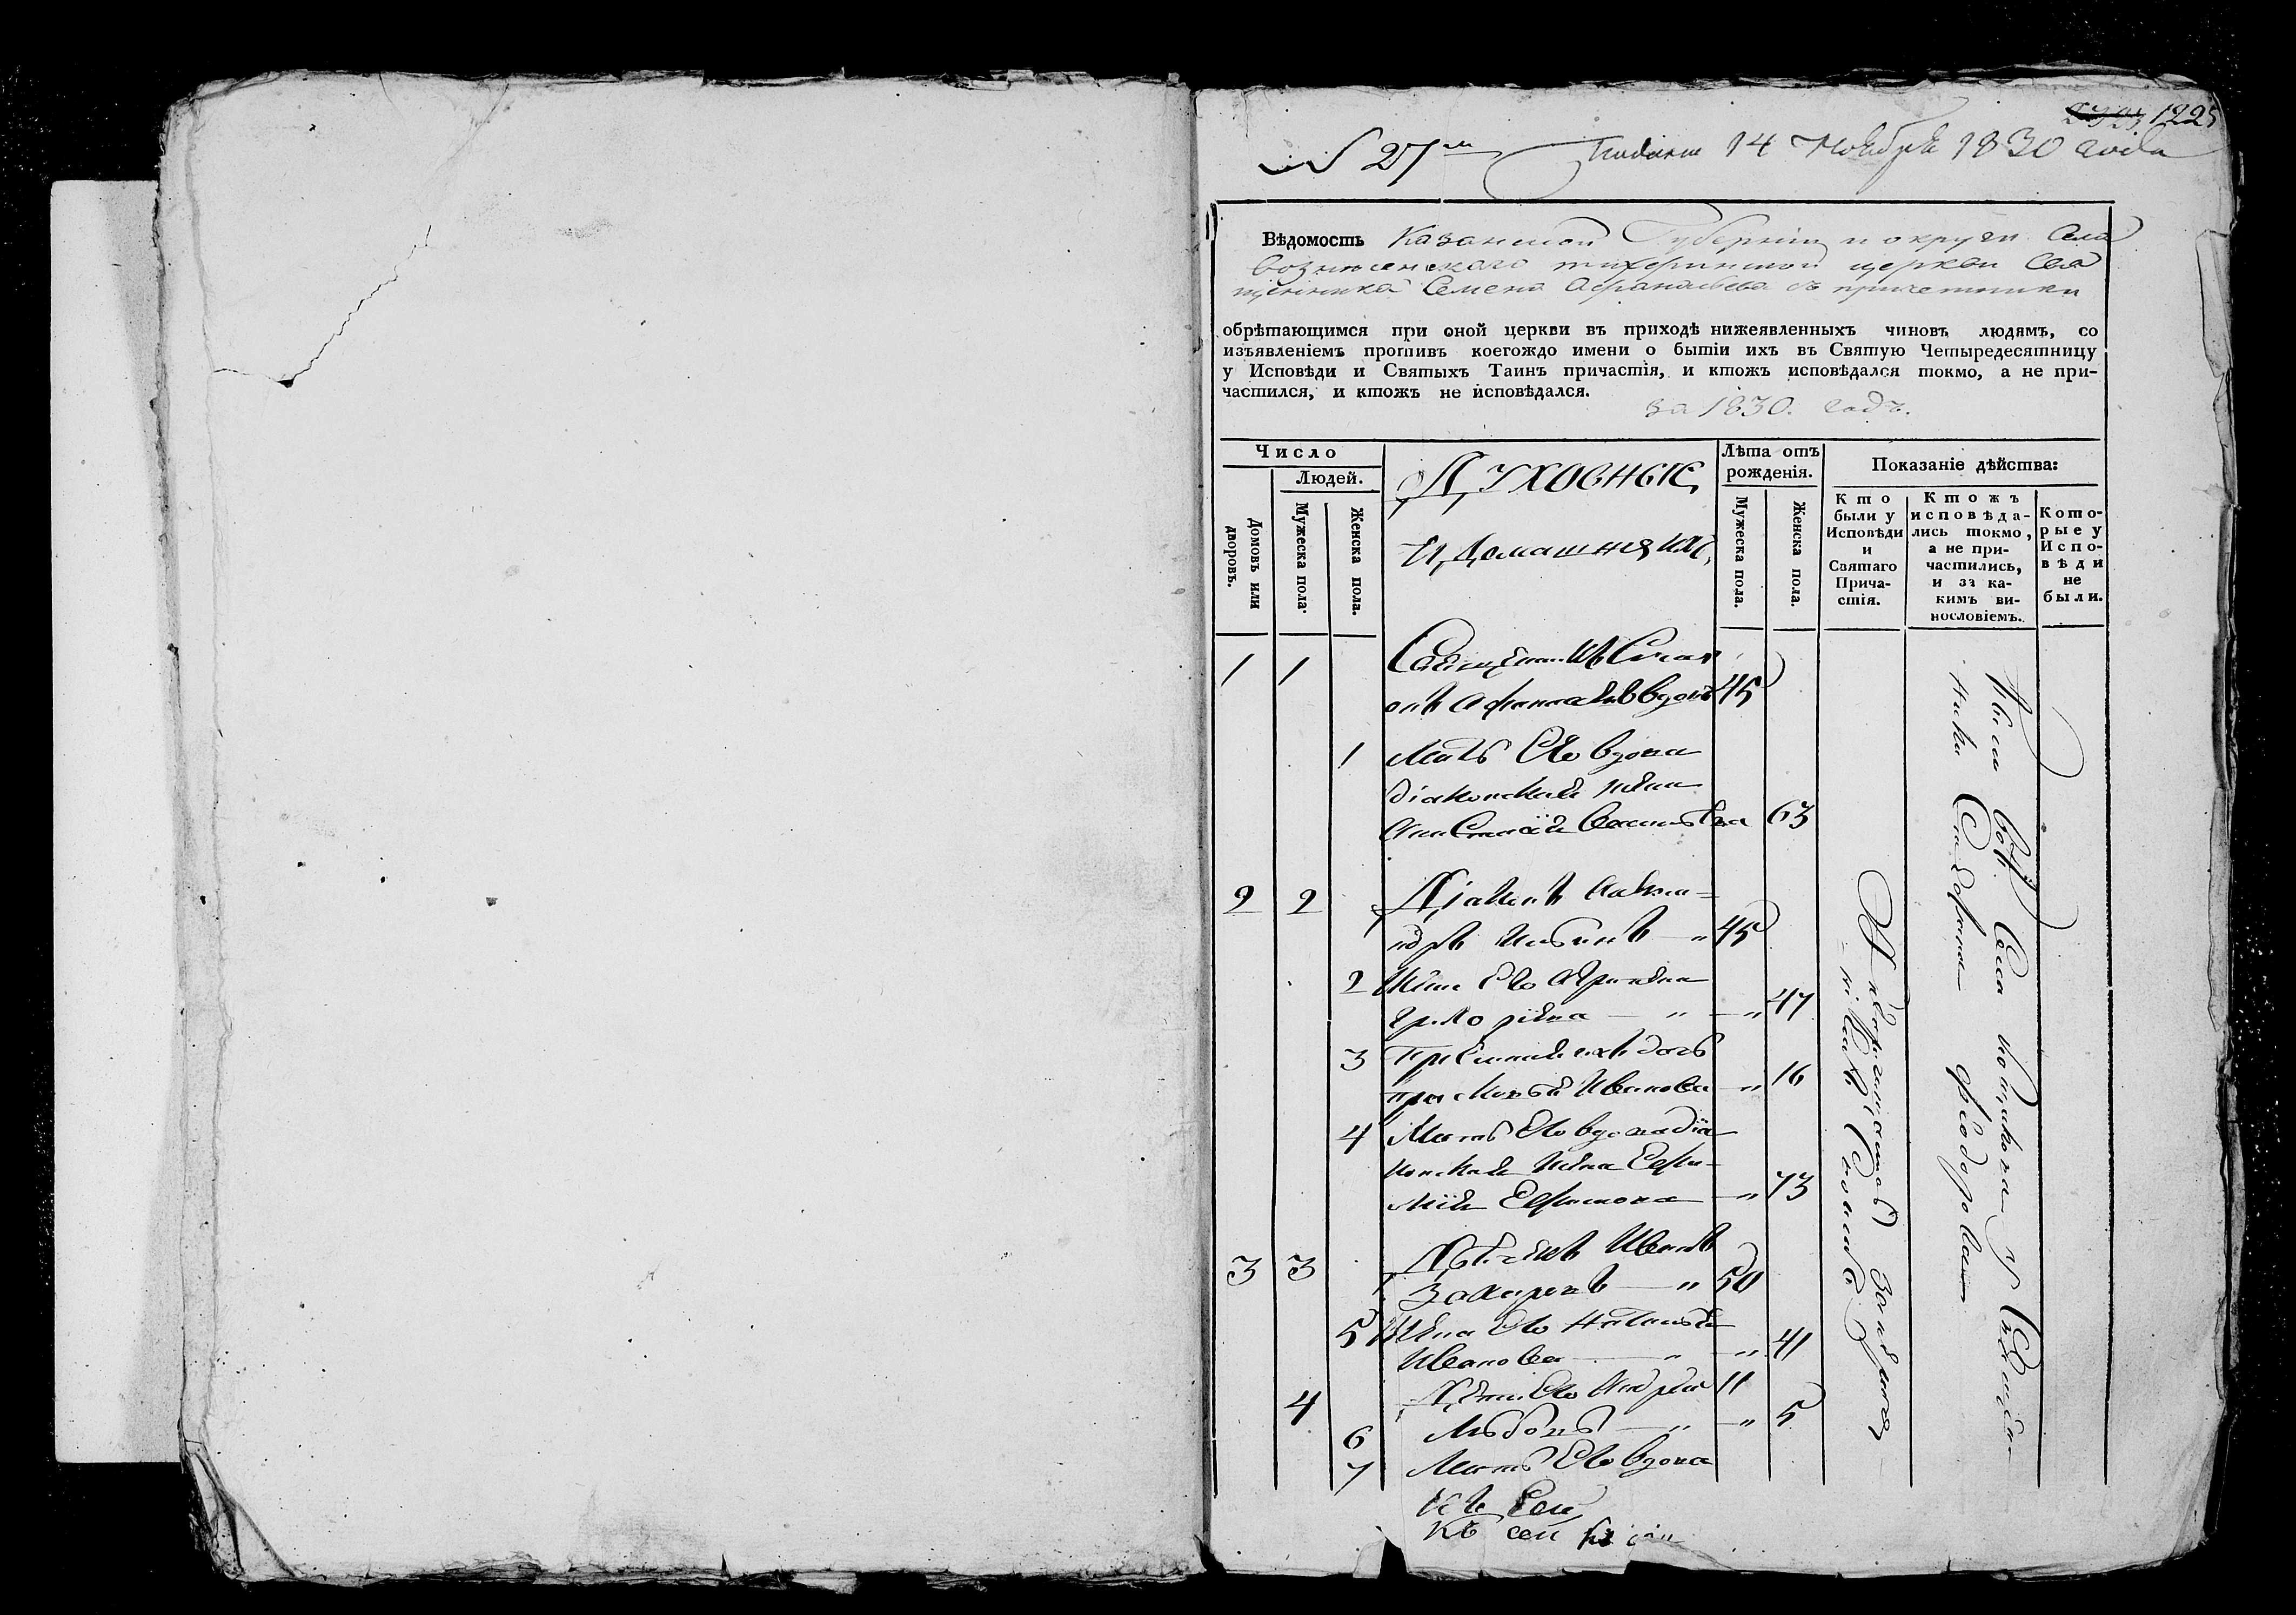 1225
N 27й Подана 14 Ноября 1830 года
Вѣдомость Казанской Губернiи и округи Села
вознесенскаго тихвинской церкви Свя
щенника Семена Афанасьева съ причетники
обрѣтающимся при оной церкви въ приходѣ нижеявленныхъ чиновъ людямъ, со
изъявленiемъ противъ коегождо имени о бытiи ихъ въ Святую Четыредесятницу
у Исповѣди и Святыхъ Таинъ причастiя, и ктожъ исповѣдался токмо, а не при-
частился, и ктожъ не исповѣдался.
за 1830. годъ.
Число
Людей.
Домовъ или дворовъ.
Мужеска пола.
Женска пола.
Духовные,
И Домашня ихъ,
Лѣта отъ
рожденiя.
Мужеска пола.
Женска пола.
Показанiе дѣйства:
Кто
были у
Исповѣди
и
Святаго
Прича-
стiя.
Ктожъ
исповѣда-
лись токмо,
а не при-
частились,
и за ка-
кимъ ви-
нословiемъ.
Кото-
рые у
Испо-
вѣди
не
были.
1 1 Священникъ Сима
онъ Афанасьевъ вдовъ 45
1 Мать Его вдова
дiаконская жена
Анастасiя Васильева 63
2 2 Дiаконъ Алекса-
ндръ Ивановъ — " 45
2 Жена Его Агрипена
Григорiева — " — " 47
3 Прiемная ихъ дочь
Прасковья Иванова — " 16
4 Мать Его вдова дiа
конская жена Евфи-
мiя Ефимова — " 73
3 3 Дьячекъ Иванъ
Захаровъ — " 50
5 Жена Его Наталья
Иванова — " — " 41
4 Дѣти Его Андрей 11
6 Любовь — " — " 5
7 Мать Его вдова
Къ Сей
Къ сей